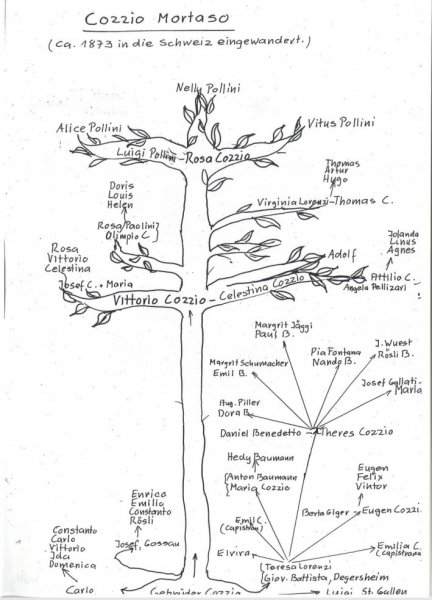 Cozzio Mortaso
(Ca. 1873 in die Schweiz eingewandert.)
Nelly Pollini
Alice Pollini
Vitus Pollini
Luigi Pollini - Rosa Cozzio
Thomas
Artur
Hugo
Virginia Lorenzi - Thomas C.
Doris
Louis
Helen
Rosa Paolini
Olimpio C.
Jolanda
Linus
Agnes
Rosa
Vittorio
Celestina
Adolf
Josef C. + Maria
Attilio C.
Angela Pellizari
Vittorio Cozzio - Celestina Cozzio
Margrit Jäggi
Paul B.
Pia Fontana
Nando B.
J. Wuest
Rösli B.
Margrit Schumacher
Emil B.
Josef Gallati-
Maria
Aug. Piller
Dora B.
Daniel Benedetto - Theres Cozzio
Hedy Baumann
{Anton Baumann
{Maria Cozzio
Eugen
Felix
Viktor
Berta Giger - Eugen Cozzi.
Enrico
Emilio
Constanto
Rösli
Josef, Gossau
Emil C.
(Capistran)
Elvira
Emilia C.
(Capistrana)
Constanto
Carlo
Vittorio
Jda
Domenica
[Teresa Lorenzi
[Giov. Battista, Degersheim
Carlo
Gebrüder Cozzio
Luigi St. Gallen